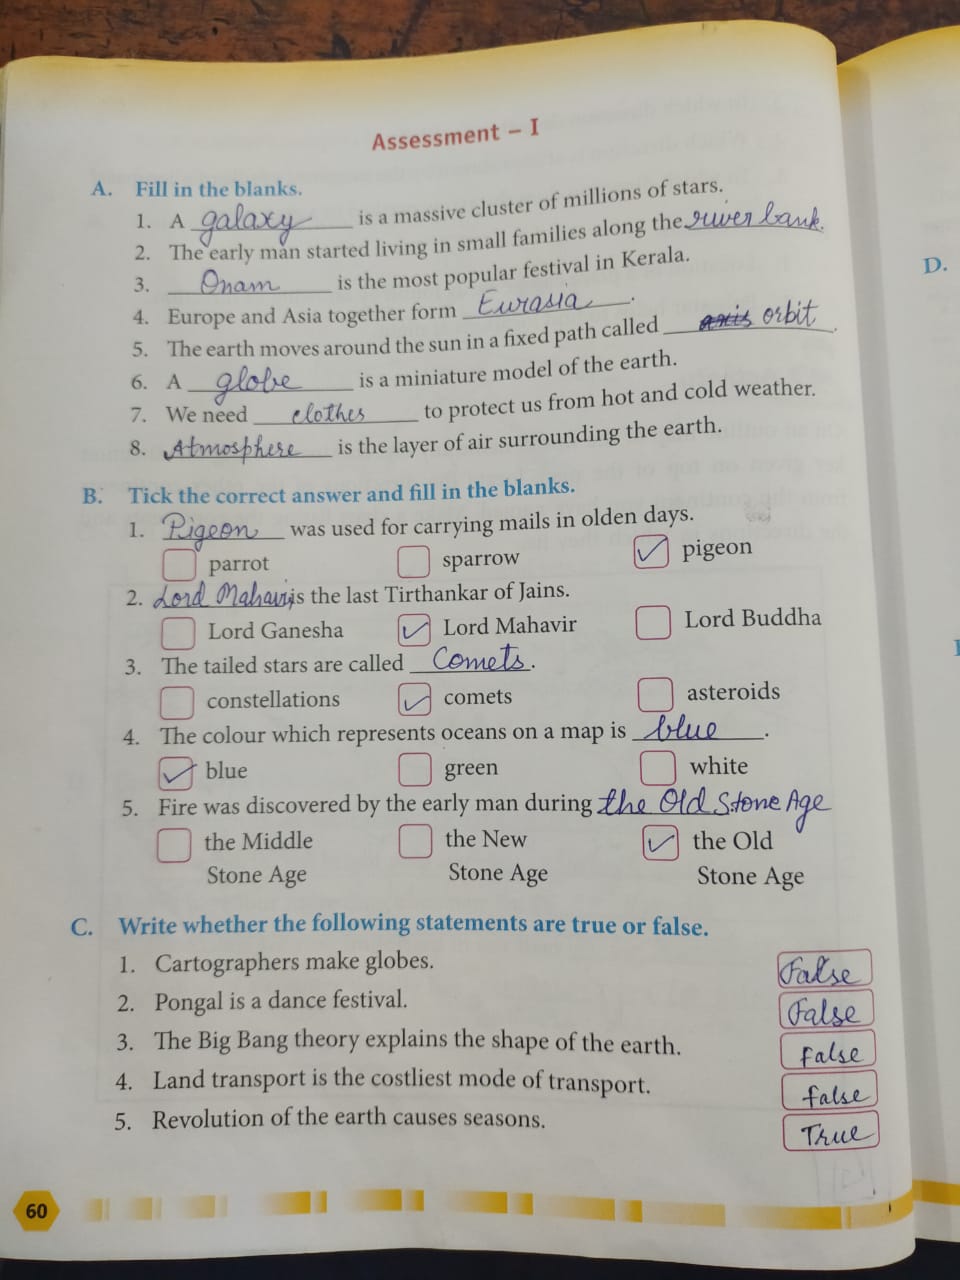 Assessment – I
A. Fill in the blanks.
1. A galaxy is a massive cluster of millions of stars.
2. The early man started living in small families along the river bank.
3. Onam is the most popular festival in Kerala.
4. Europe and Asia together form Eurasia.
5. The earth moves around the sun in a fixed path called axis orbit.
6. A globe is a miniature model of the earth.
7. We need clothes to protect us from hot and cold weather.
8. Atmosphere is the layer of air surrounding the earth.
B. Tick the correct answer and fill in the blanks.
1. Pigeon was used for carrying mails in olden days.
parrot sparrow pigeon
2. Lord Mahavir is the last Tirthankar of Jains.
Lord Ganesha Lord Mahavir Lord Buddha
3. The tailed stars are called Comets.
constellations comets asteroids
4. The colour which represents oceans on a map is blue.
blue green white
5. Fire was discovered by the early man during the Old Stone Age
the Middle the New the Old
Stone Age Stone Age Stone Age
C. Write whether the following statements are true or false.
1. Cartographers make globes. False
2. Pongal is a dance festival. False
3. The Big Bang theory explains the shape of the earth. False
4. Land transport is the costliest mode of transport. false
5. Revolution of the earth causes seasons. True
60
D.